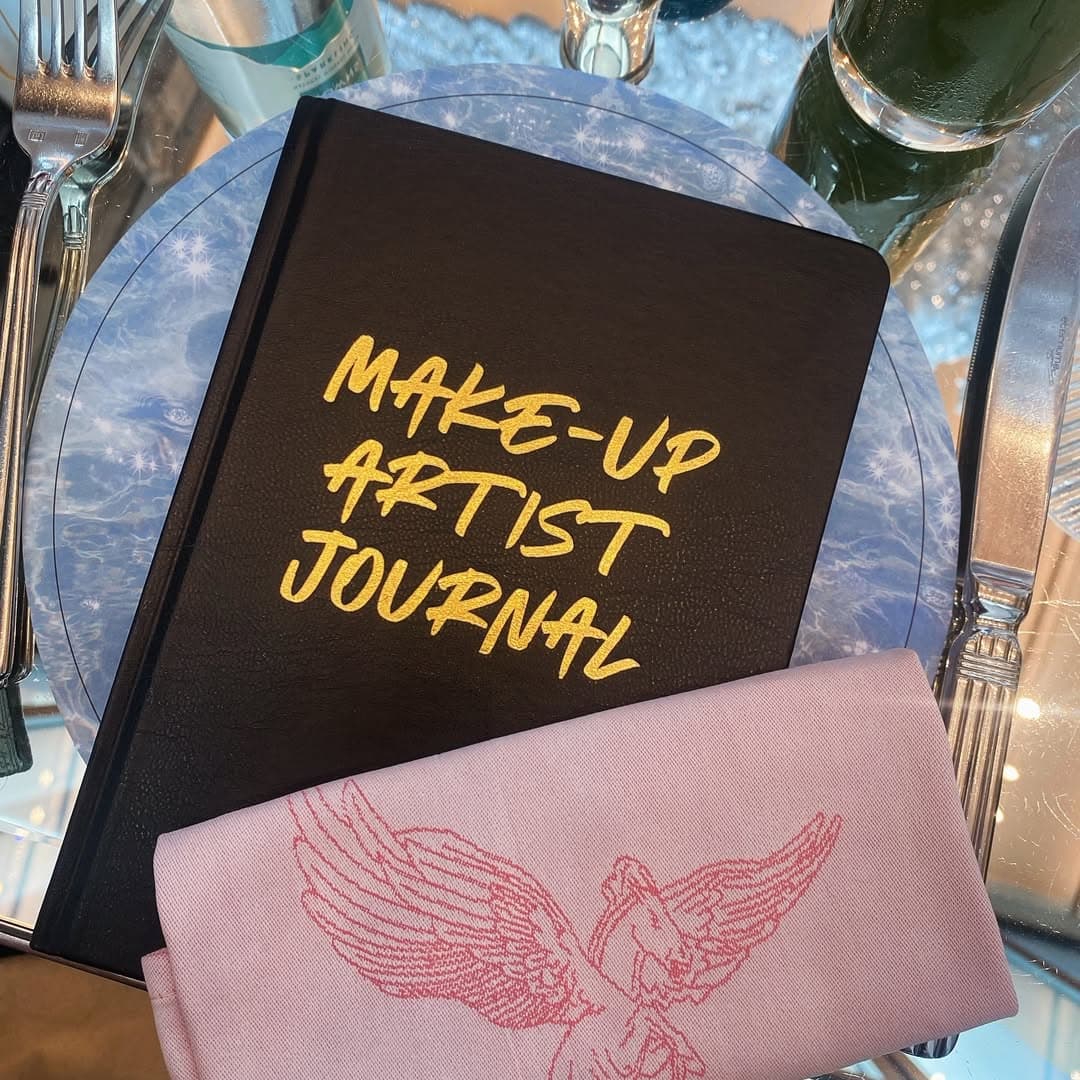 MAKE-UP
ARTIST
JOURNAL